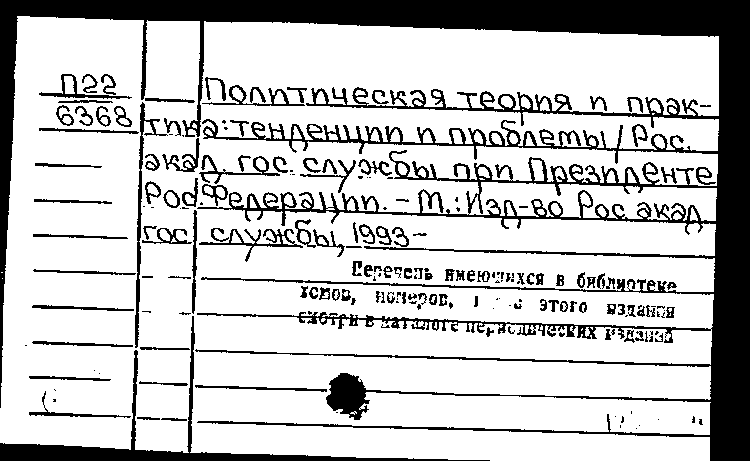 П22
6368
Политическая теория и прак-
тика: тенденции и проблемы / Рос.
акад. гос. службы при Президенте
Рос. Федерации. - М.: Изд-во Рос. акад.
гос. службы, 1993-
Перечень имеющихся в библиотеке
томов, номеров, этого издания
смотри в каталоге периодических изданий